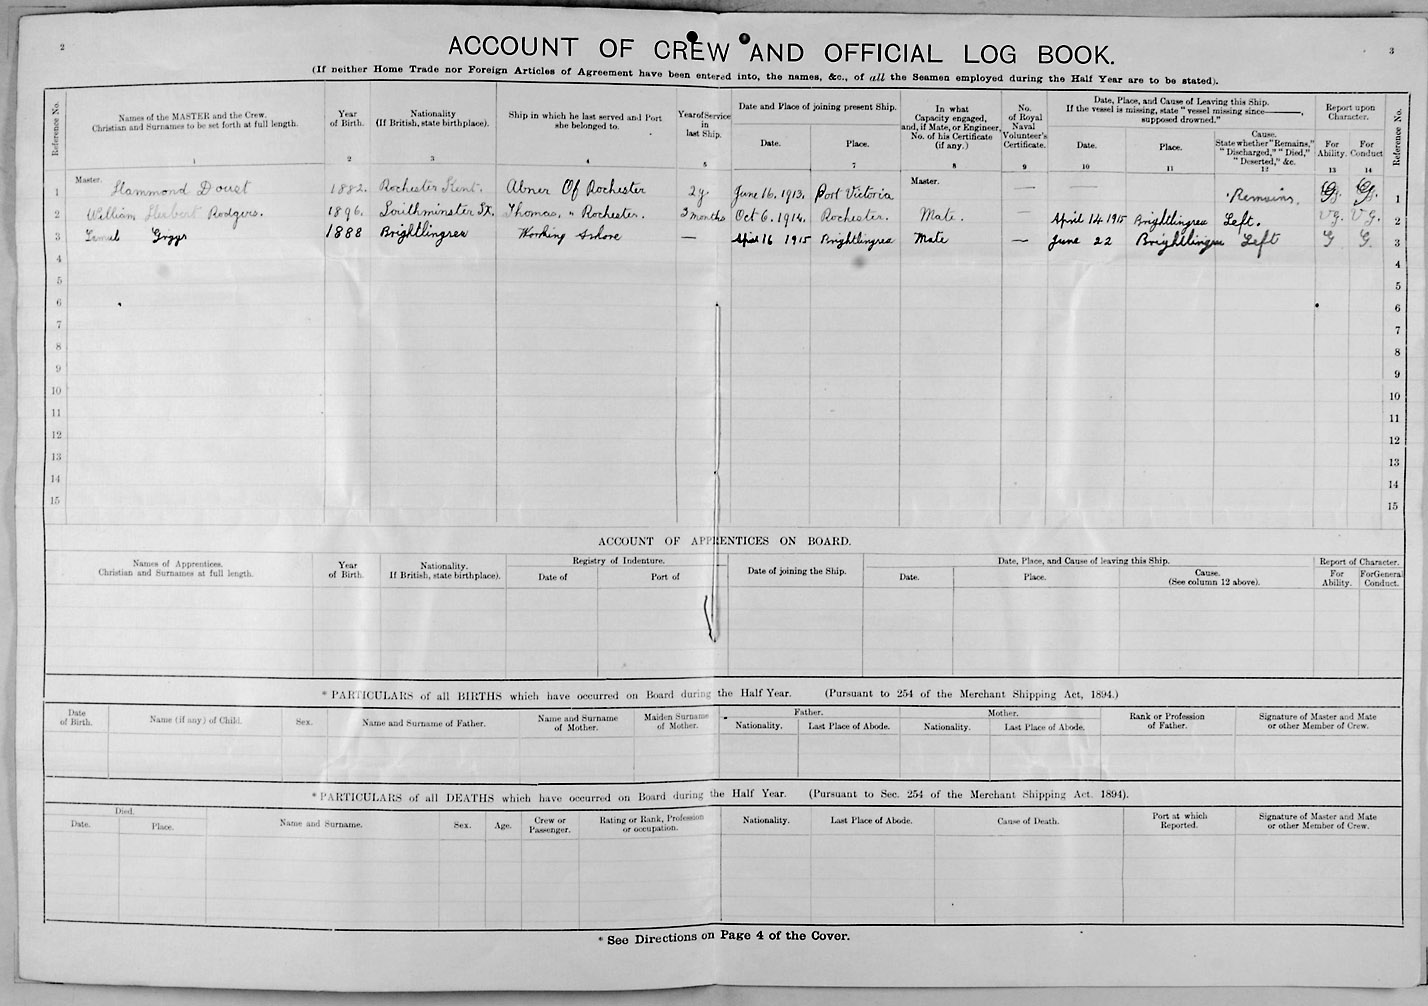 2
3
ACCOUNT OF CREW AND OFFICIAL LOG BOOK.
(If neither Home Trade nor Foreign Articles of Agreement have been entered into, the names, &c., of all the Seamen employed during the Half Year are to be stated).
Reference No.
Names of the MASTER and the Crew.
Christian and Surnames to be set forth at full length.
1
Year
of Birth.
2
Nationality
(If British, state birthplace).
3
Ship in which he last served and Port
she belonged to.
4
Year of Service
in
last Ship.
5
Date and Place of joining present Ship.
Date.
Place.
7
In what
Capacity engaged,
and, if Mate, or Engineer,
No. of his Certificate
(if any.)
8
No.
of Royal
Naval
Volunteer's
Certificate.
9
Date, Place, and Cause of Leaving this Ship.
If the vessel is missing, state "vessel missing since———,
supposed drowned."
Date.
10
Place.
11
Cause.
State whether "Remains,"
"Discharged," "Died,"
"Deserted," &c.
12
Report upon
Character.
For
Ability.
13
For
Conduct
14
Reference No.
1 Master. Hammond Douet 1882. Rochester Kent. Abner Of Rochester 2 y. June 16. 1913. Port Victoria Master. — — Remains. G. G. 1
2 William Herbert Rodgers. 1896. Southminster Sx. Thomas, " Rochester. 3 months Oct 6. 1914. Rochester. Mate. — April 14 1915 Brightlingsea Left. V G. V G. 2
3 Griggs 1888 Brightlingsea Working Ashore — April 16 1915 Brightlingsea Mate — June 22 Brightlingsea Left G G. 3
4 4
5 5
6 6
7 7
8 8
9 9
10 10
11 11
12 12
13 13
14 14
15 15
ACCOUNT OF APPRENTICES ON BOARD.
Names of Apprentices.
Christian and Surnames at full length.
Year
of Birth.
Nationality.
If British, state birthplace).
Registry of Indenture.
Date of
Port of
Date of joining the Ship.
Date, Place, and Cause of leaving this Ship.
Date.
Place.
Cause.
(See column 12 above).
Report of Character.
For
Ability.
For General
Conduct.
* PARTICULARS of all BIRTHS which have occurred on Board during the Half Year. (Pursuant to 254 of the Merchant Shipping Act, 1894.)
Date
of Birth.
Name (if any) of Child.
Sex.
Name and Surname of Father.
Name and Surname
of Mother.
Maiden Surname
of Mother.
Father.
Nationality.
Last Place of Abode.
Mother.
Nationality.
Last Place of Abode.
Rank or Profession
of Father.
Signature of Master and Mate
or other Member of Crew.
* PARTICULARS of all DEATHS which have occurred on Board during the Half Year. (Pursuant to Sec. 254 of the Merchant Shipping Act. 1894).
Died.
Date.
Place.
Name and Surname.
Sex.
Age.
Crew or
Passenger.
Rating or Rank, Profession
or occupation.
Nationality.
Last Place of Abode.
Cause of Death.
Port at which
Reported.
Signature of Master and Mate
or other Member of Crew.
* See Directions on Page 4 of the Cover.